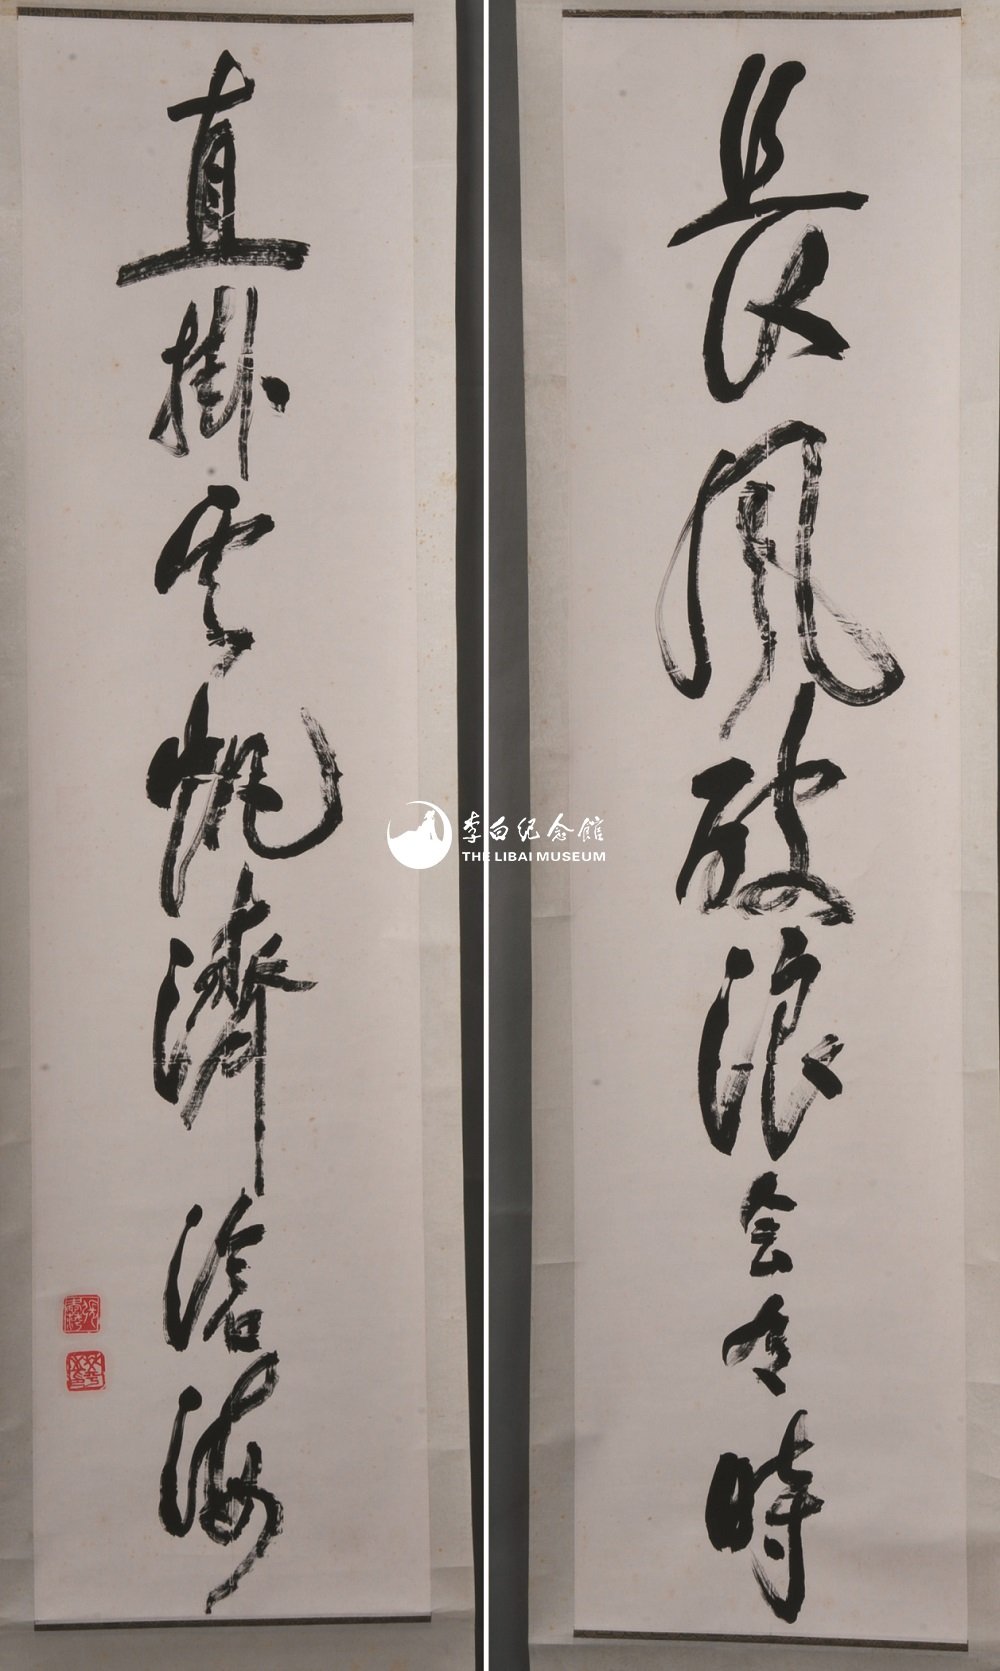 長風破浪会有時
直掛雲帆濟滄海
李白纪念館
THE LIBAI MUSEUM